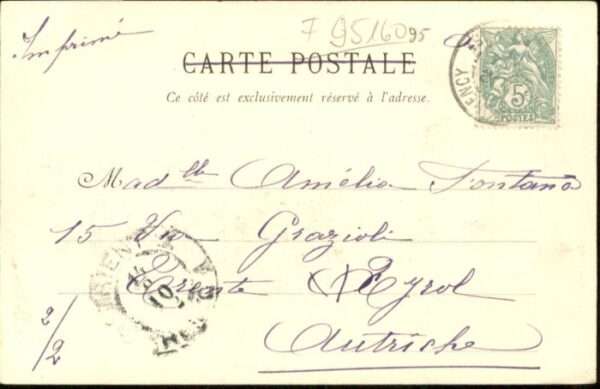 Imprimé
F 95160 95
CARTE POSTALE
Ce côté est exclusivement réservé à l'adresse.
5c
POSTES
ENCY
Madelle Amélia Fontana
15 Via Grazioli
Trente Tyrol
Autriche
TRIENT
2/2